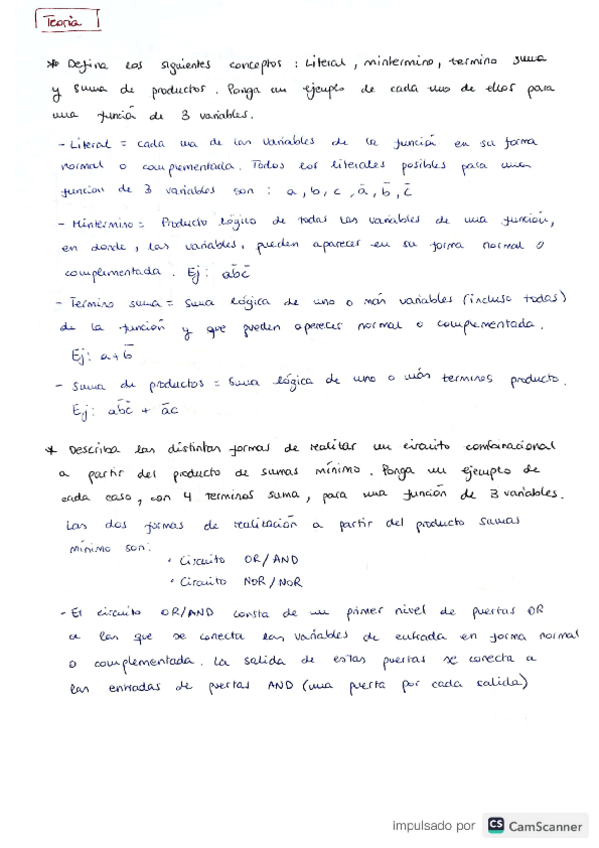 Teoría
* Defina los siguientes conceptos: Literal, mintermino, termino suma
y suma de productos. Ponga un ejemplo de cada uno de ellos para
una función de 3 variables.
- Literal = cada una de las variables de la función en su forma
normal o complementada. Todos los literales posibles para una
función de 3 variables son : a, b, c, ā, b̄, c̄
- Mintermino = Producto lógico de todas las variables de una función,
en donde, las variables, pueden aparecer en su forma normal o
complementada. Ej: ab̄c̄
- Termino suma = Suma lógica de uno o más variables (incluso todas)
de la función y que pueden aparecer normal o complementada.
Ej: a + b̄
- Suma de productos = Suma lógica de uno o más terminos producto.
Ej: ab̄c̄ + āc
* Describa las distintas formas de realizar un circuito combinacional
a partir del producto de sumas mínimo. Ponga un ejemplo de
cada caso, con 4 terminos suma, para una función de 3 variables.
Las dos formas de realización a partir del producto sumas
mínimo son:
· Circuito OR/AND
· Circuito NOR/NOR
- El circuito OR/AND consta de un primer nivel de puertas OR
a las que se conecta las variables de entrada en forma normal
o complementada. La salida de estas puertas se conecta a
las entradas de puertas AND (una puerta por cada salida)
impulsado por CS CamScanner